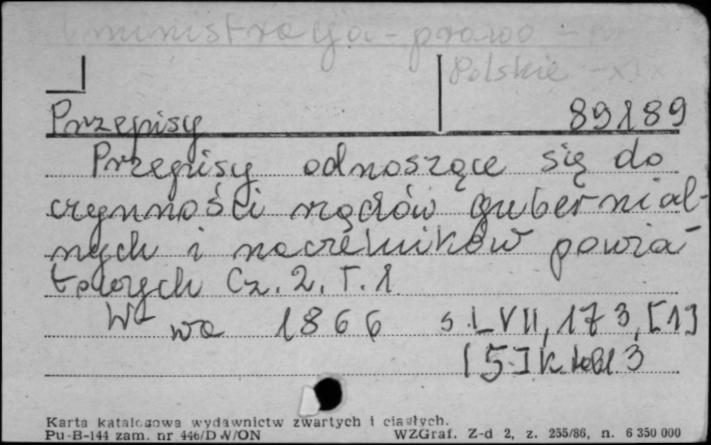 Administracja - prawo -
Polskie - XIX
Przepisy 89189
Przepisy odnoszące się do
czynności rządów gubernial-
nych i naczelników powia-
towych Cz. 2. T. 1
W-wa 1866 s. LVII, 173, [1]
[5] k tabl 3
Karta katalogowa wydawnictw zwartych i ciągłych.
Pu-B-144 zam. nr 446/DW/ON WZGraf. Z-d 2, z. 255/86, n. 6 350 000